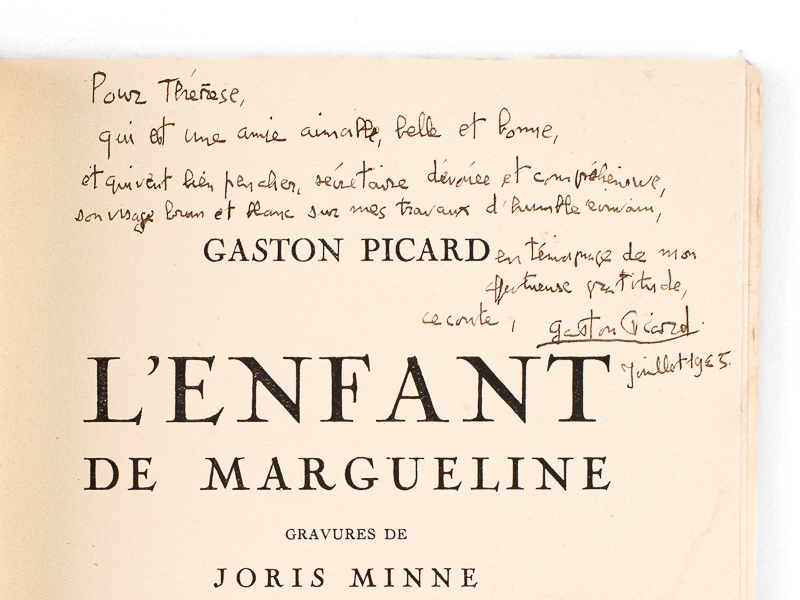 Pour Thérèse,
qui est une amie aimable, belle et bonne,
et qui veut bien pencher, secrétaire dévouée et compréhensive,
son visage brun et blanc sur mes travaux d'humble écrivain,
GASTON PICARD
en témoignage de mon
affectueuse gratitude,
ce conte,
Gaston Picard.
Juillet
L'ENFANT
DE MARGUELINE
GRAVURES DE
JORIS MINNE